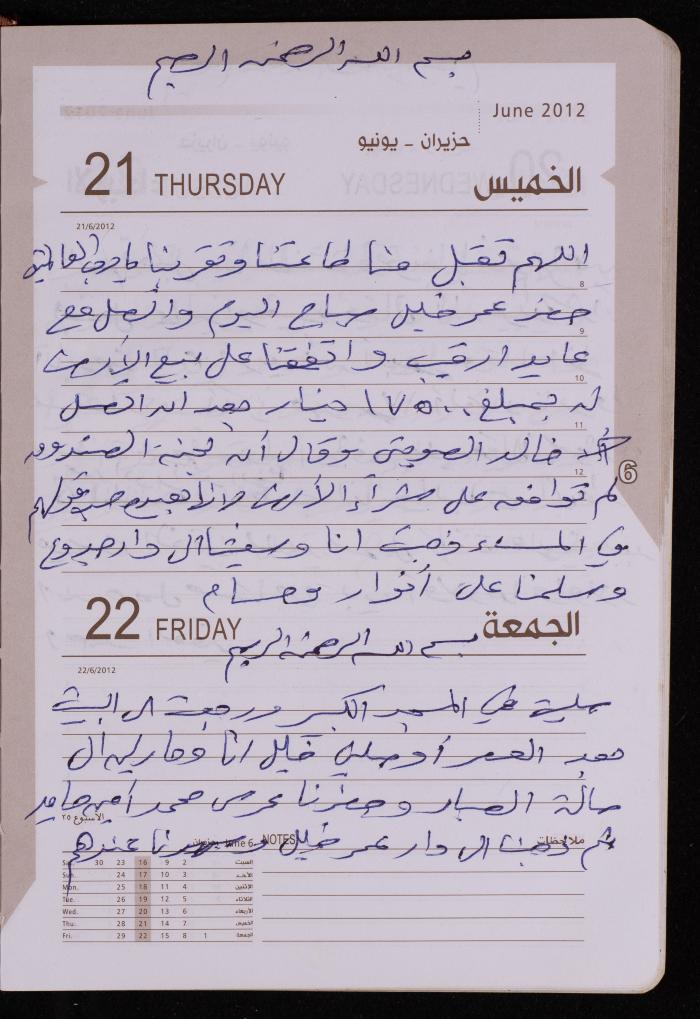 بسم الله الرحمن الرحيم
June 2012
حزيران - يونيو
21 THURSDAY الخميس
21/6/2012
اللهم تقبل منا طاعتنا وتقربنا يا رب العالمين
8
حضر عمر خليل صباح اليوم واتصل مع
9
عايد ارقيب واتفقنا على بيع الأرض
10
له بمبلغ ١٧٥٠٠ دينار بعد ان اتصل
11
خالد وقال أن لجنة الصندوق
12
6
لم توافق على شراء الأرض
في المساء ذهبت انا وسفيان الى دار جدوع
وسلمنا على أنوار وحسام
22 FRIDAY الجمعة
بسم الله الرحمن الرحيم
22/6/2012
صليت في المسجد الكبير ورجعت الى البيت
بعد العصر أوصلني خليل انا الى
صالة الصبار وحضرنا عرس محمد أمين حامد
الأسبوع ٢٥
ثم ذهبنا الى دار عمر خليل وسهرنا عندهم
June 6 حزيران NOTES ملاحظات
Sat. 30 23 16 9 2 السبت
Sun. 24 17 10 3 الأحد
Mon. 25 18 11 4 الإثنين
Tue. 26 19 12 5 الثلاثاء
Wed. 27 20 13 6 الأربعاء
Thu. 28 21 14 7 الخميس
Fri. 29 22 15 8 1 الجمعة